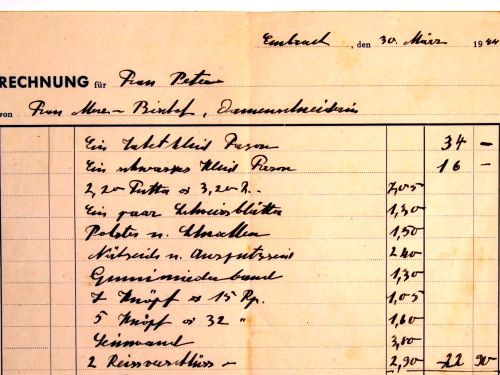 Embrach, den 30. März 1944
RECHNUNG für Frau Peter
von Frau Moor-Bischof, Damenschneiderin
Ein Jacketkleid Fason 34 –
Ein schwarzes Kleid Fason 16 –
2,20 Futter à 3,20 Fr. 7,05
Ein paar Schweissblätter 1,30
Polster u. Schnallen 1,50
Nähseide u. Ausputzseid 2.40
Gummimiederband 1,30
7 Knöpf à 15 Rp. 1,05
5 Knöpf à 32 " 1,60
Leinwand 3,80
2 Reissverschlüss – 2,90 22 90